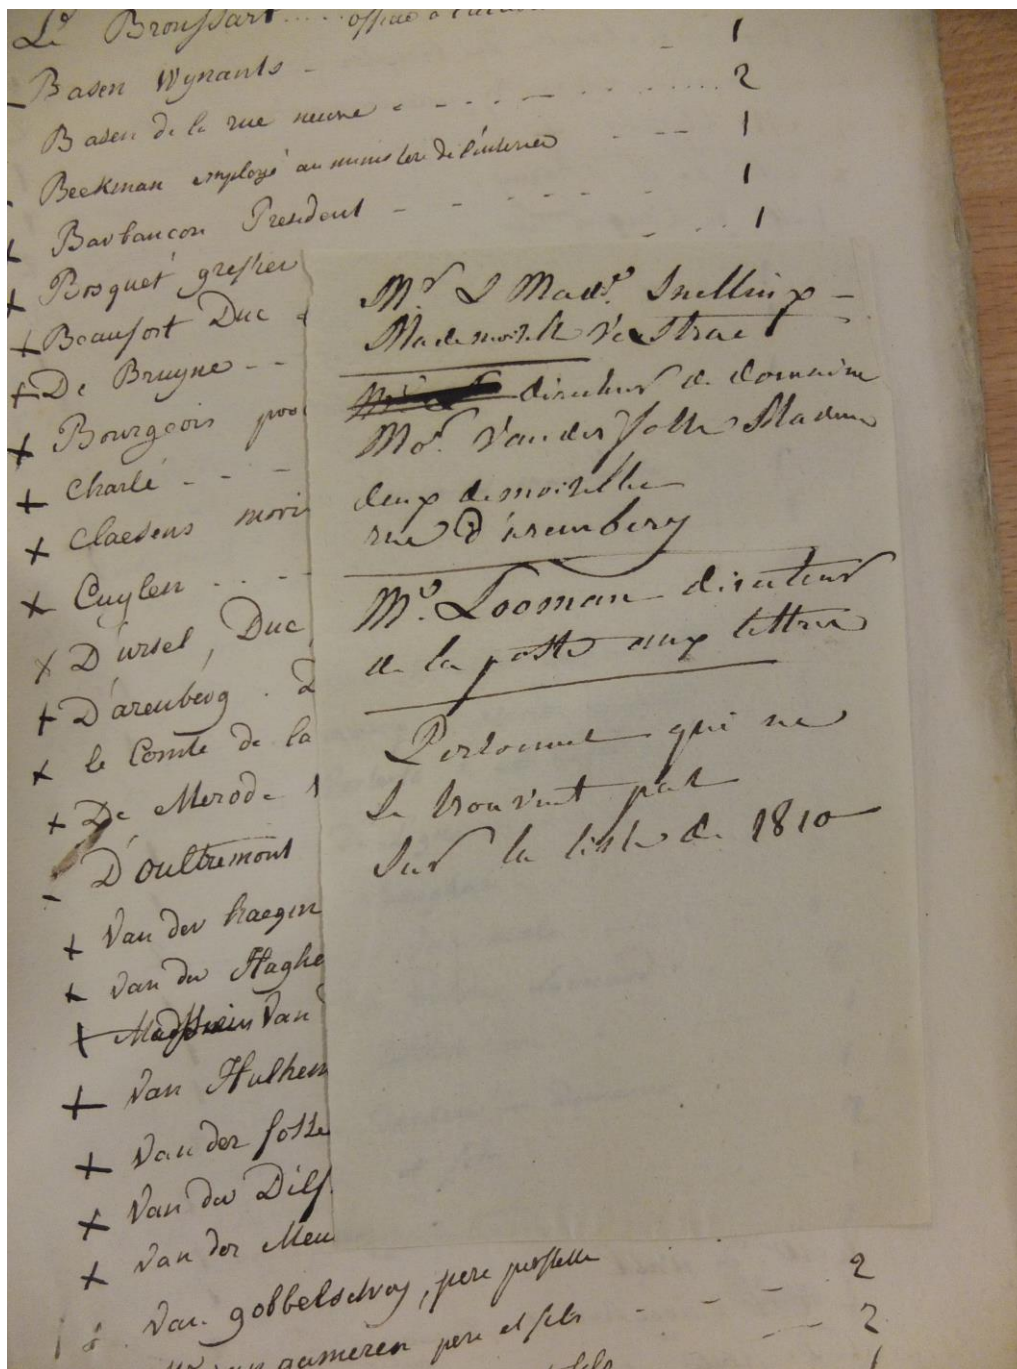 Le Broussart ..... office à
Basen Wynants - - 1
Basen de la rue neuve - - - - 2
Beekman employé au ministere de l'interieu - - - 1
+ Barbancon President - - - - - 1
+ Bosquet greffier - - 1
+ Beaufort Duc
+ De Bruyne - -
+ Bourgeois
+ Charlé - - -
+ Claesens
+ Cuylen - - - -
+ D'ursel, Duc
+ D'arenberg . D
+ le Comte de la
+ De Merode
- D'oultremont
+ Van der haegen
+ Van der Haghe
+ Van
+ Van Hulhem
+ Van der fosse
+ Van der Dilf
+ Van der Meu
Van gobbelschroy, pere
gameren pere et fils - - - 2
2
Mr & Made. Snellinx -
Mademoiselle
directeur de domaine
Mor. Vander fosse Madame
deux demoiselle
rue d'aremberg
Mr. Looman directeur
de la poste aux lettres
Personnes qui ne
se trouvent pas
sur la liste de 1810